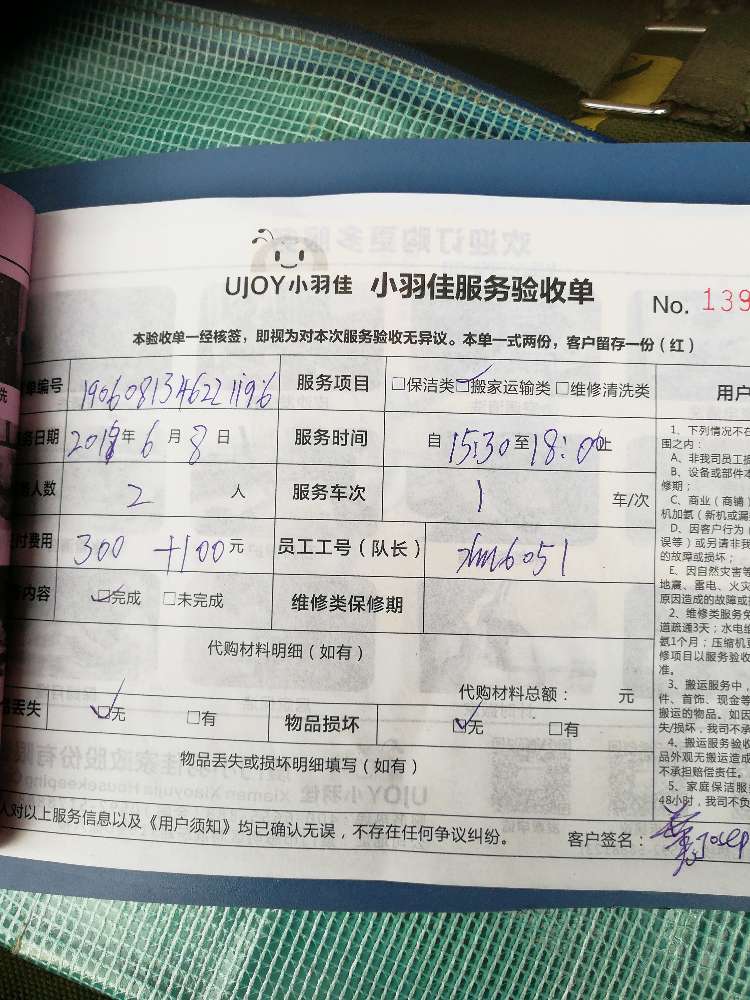 UJOY小羽佳 小羽佳服务验收单
No. 139
本验收单一经核签，即视为对本次服务验收无异议。本单一式两份，客户留存一份（红）
单编号 服务项目 □保洁类 ☑搬家运输类 □维修清洗类
用户
务日期 2019年6月8日 服务时间 自15:30至18:00止
人数 2 人 服务车次 1 车/次
付费用 300 +100元 员工工号（队长） xm6051
内容 ☑完成 □未完成 维修类保修期
代购材料明细（如有）
代购材料总额： 元
丢失 ☑无 □有 物品损坏 ☑无 □有
物品丢失或损坏明细填写（如有）
人对以上服务信息以及《用户须知》均已确认无误，不存在任何争议纠纷。
客户签名：
1、下列情况不在
围之内：
A、非我司员工
B、设备或部件本
修期；
C、商业（商铺）
机加氨（新机或漏
D、因客户行为（
误等）或另请非我
的故障或损坏；
E、因自然灾害等
地震、雷电、火灾
原因造成的故障或
2、维修类服务免
道疏通3天；水电维
氨1个月；压缩机
修项目以服务验收
准。
3、搬运服务中，
件、首饰、现金等
搬运的物品。如因
失/损坏，我司不承
4、搬运服务验收
品外观无搬运造成
不承担赔偿责任。
5、家庭保洁服
48小时，我司不负